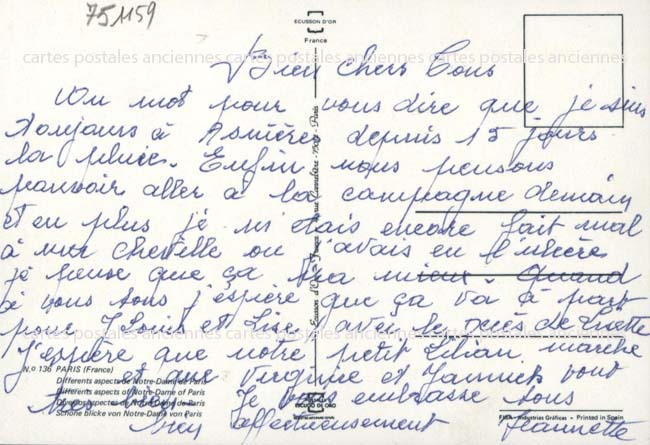 751159
ECUSSON D'OR
France
cartes postales anciennes
Bien chers tous
Un mot pour vous dire que je suis
toujours à Asnières depuis 15 jours
la pluie. Enfin nous pensons
pouvoir aller à la campagne demain
et en plus je m'étais encore fait mal
à ma cheville ou j'avais eu l'ulcère
je pense que ça va mieux. Quand
à vous tous j'espère que ça va à part
pour et Lise avec le
J'espère que notre petit Lilian marche
et que Virginie et Yannick vont
très bien Je vous embrasse tous
bien affectueusement Jeannette
N.o 136 PARIS (France)
Differents aspects de Notre-Dame de Paris
Different aspects of Notre-Dame of Paris
Notre-Dame de Paris
Schöne Blicke von Notre-Dame von Paris
ESCUDO DE ORO
Industrias Gráficas - Printed in Spain